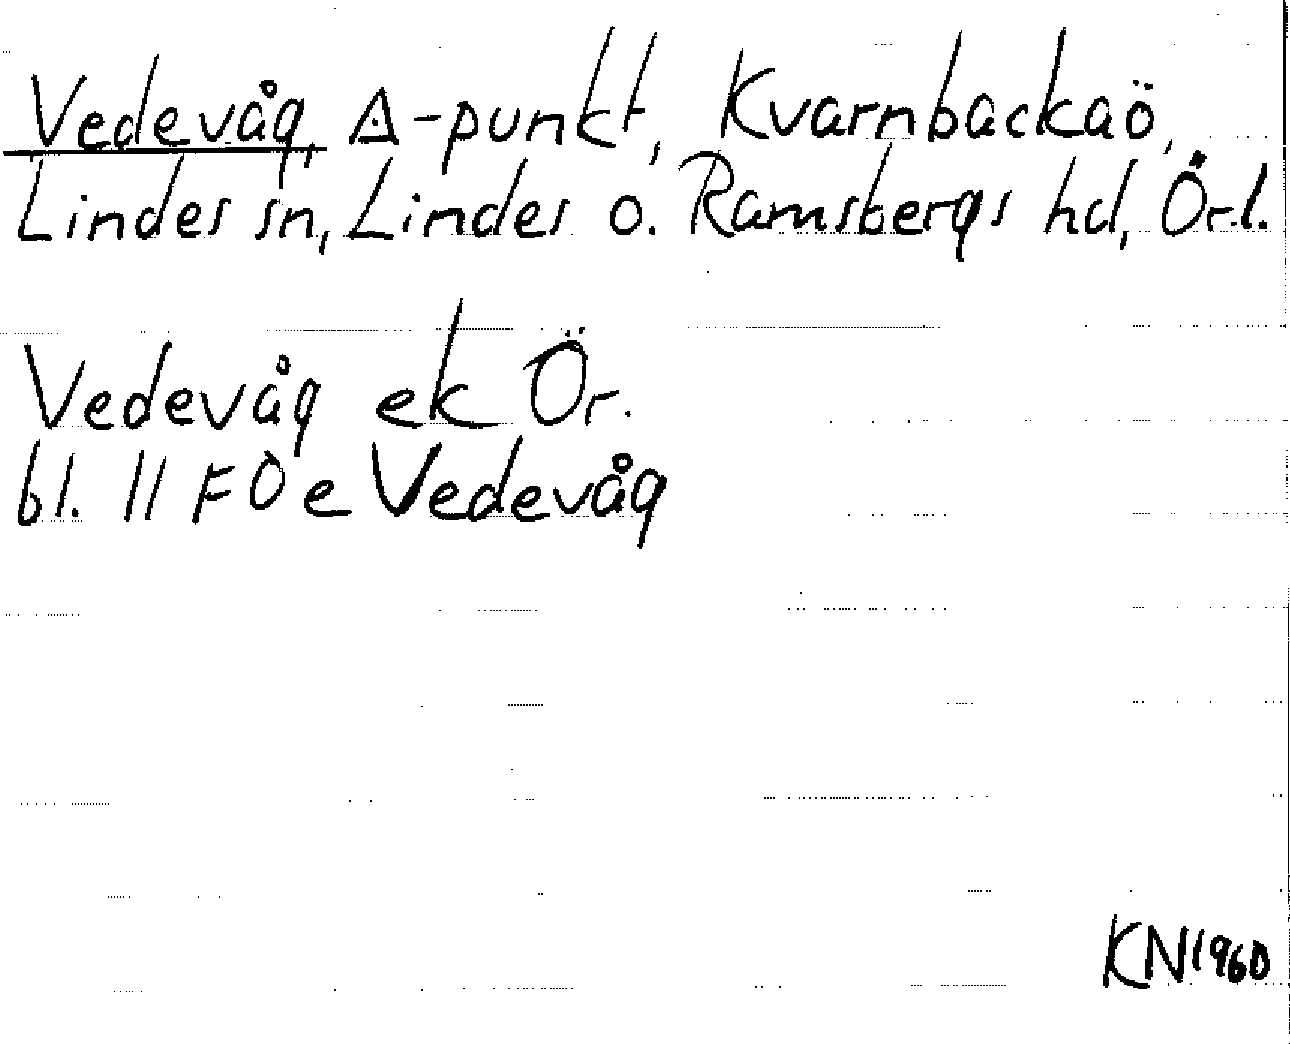 Vedevåg, △-punkt, Kvarnbackaö,
Lindes sn, Lindes o. Ramsbergs hd, Ör.l.
Vedevåg ek Ör.
bl. 11 F Ö e Vedevåg
KN 1960